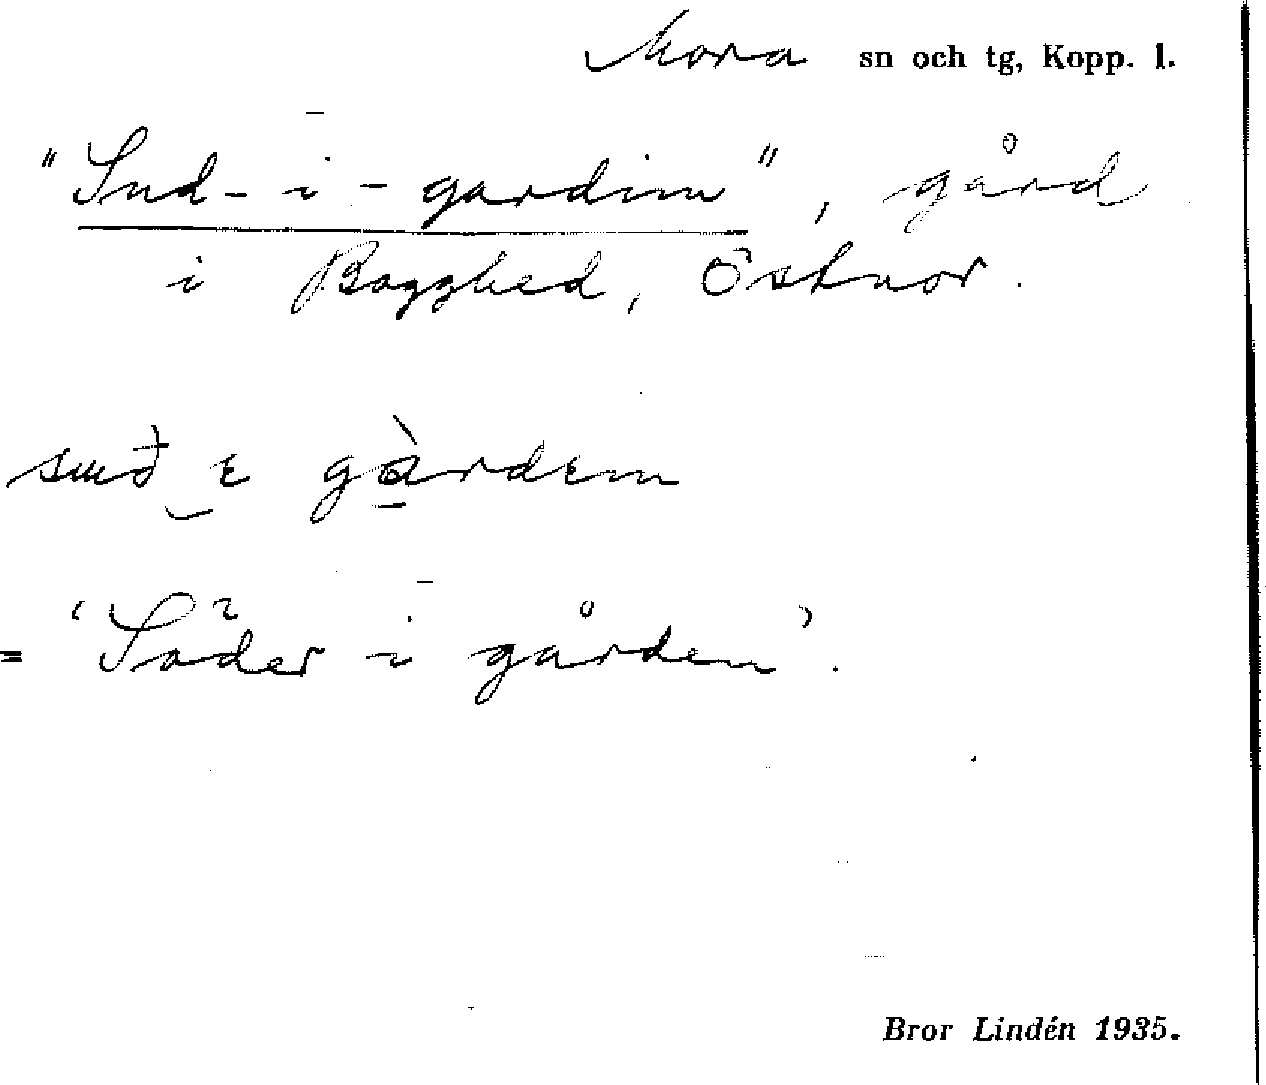 Mora sn och tg, Kopp. l.
"Sud-i-gardim", gård
i Bogghed, Östnor.
suđ‿ɪ gàrdɪm
= 'Söder i gården'.
Bror Lindén 1935.